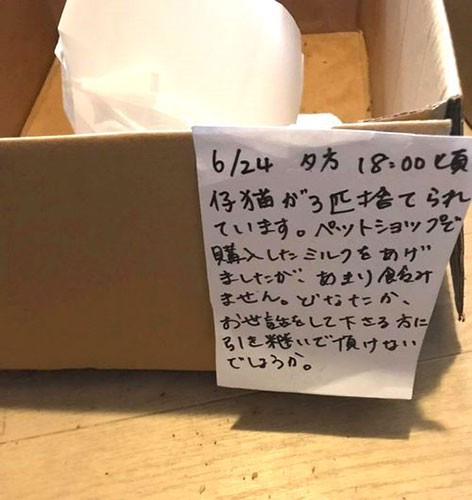 6/24 夕方 18:00頃
仔猫が3匹捨てられ
ています。ペットショップで
購入したミルクをあげ
ましたが、あまり飲み
ません。どなたか、
お世話をして下さる方に
引き継いで頂けない
でしょうか。